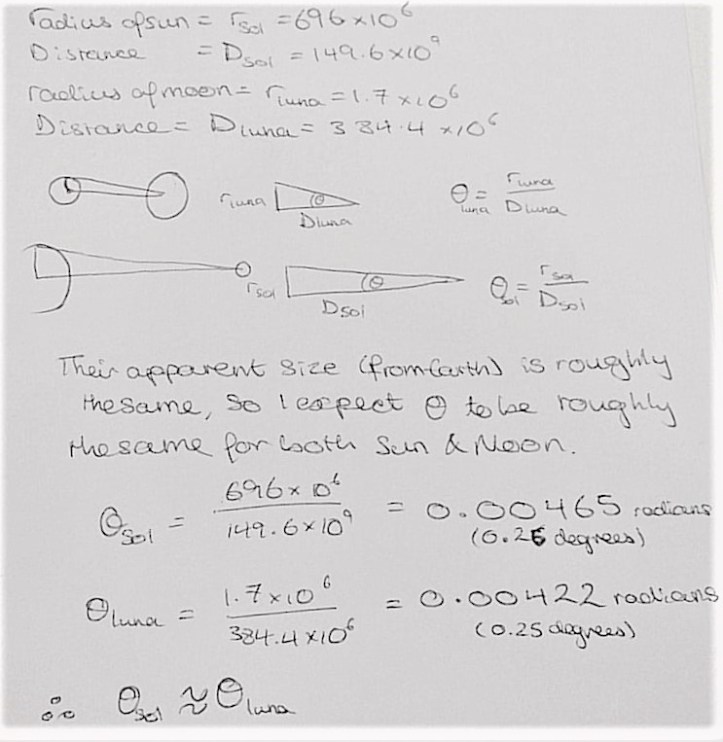 radius of sun = r_sol = 696 × 10⁶
Distance = D_sol = 149.6 × 10⁹
radius of moon = r_luna = 1.7 × 10⁶
Distance = D_luna = 384.4 × 10⁶
r_luna θ θ_luna = r_luna / D_luna
D_luna
r_sol θ θ_sol = r_sol / D_sol
D_sol
Their apparent size (from Earth) is roughly
the same, so I expect θ to be roughly
the same for both Sun & Moon.
θ_sol = 696 × 10⁶ / 149.6 × 10⁹ = 0.00465 radians
(0.26 degrees)
θ_luna = 1.7 × 10⁶ / 384.4 × 10⁶ = 0.00422 radians
(0.25 degrees)
∴ θ_sol ≈ θ_luna